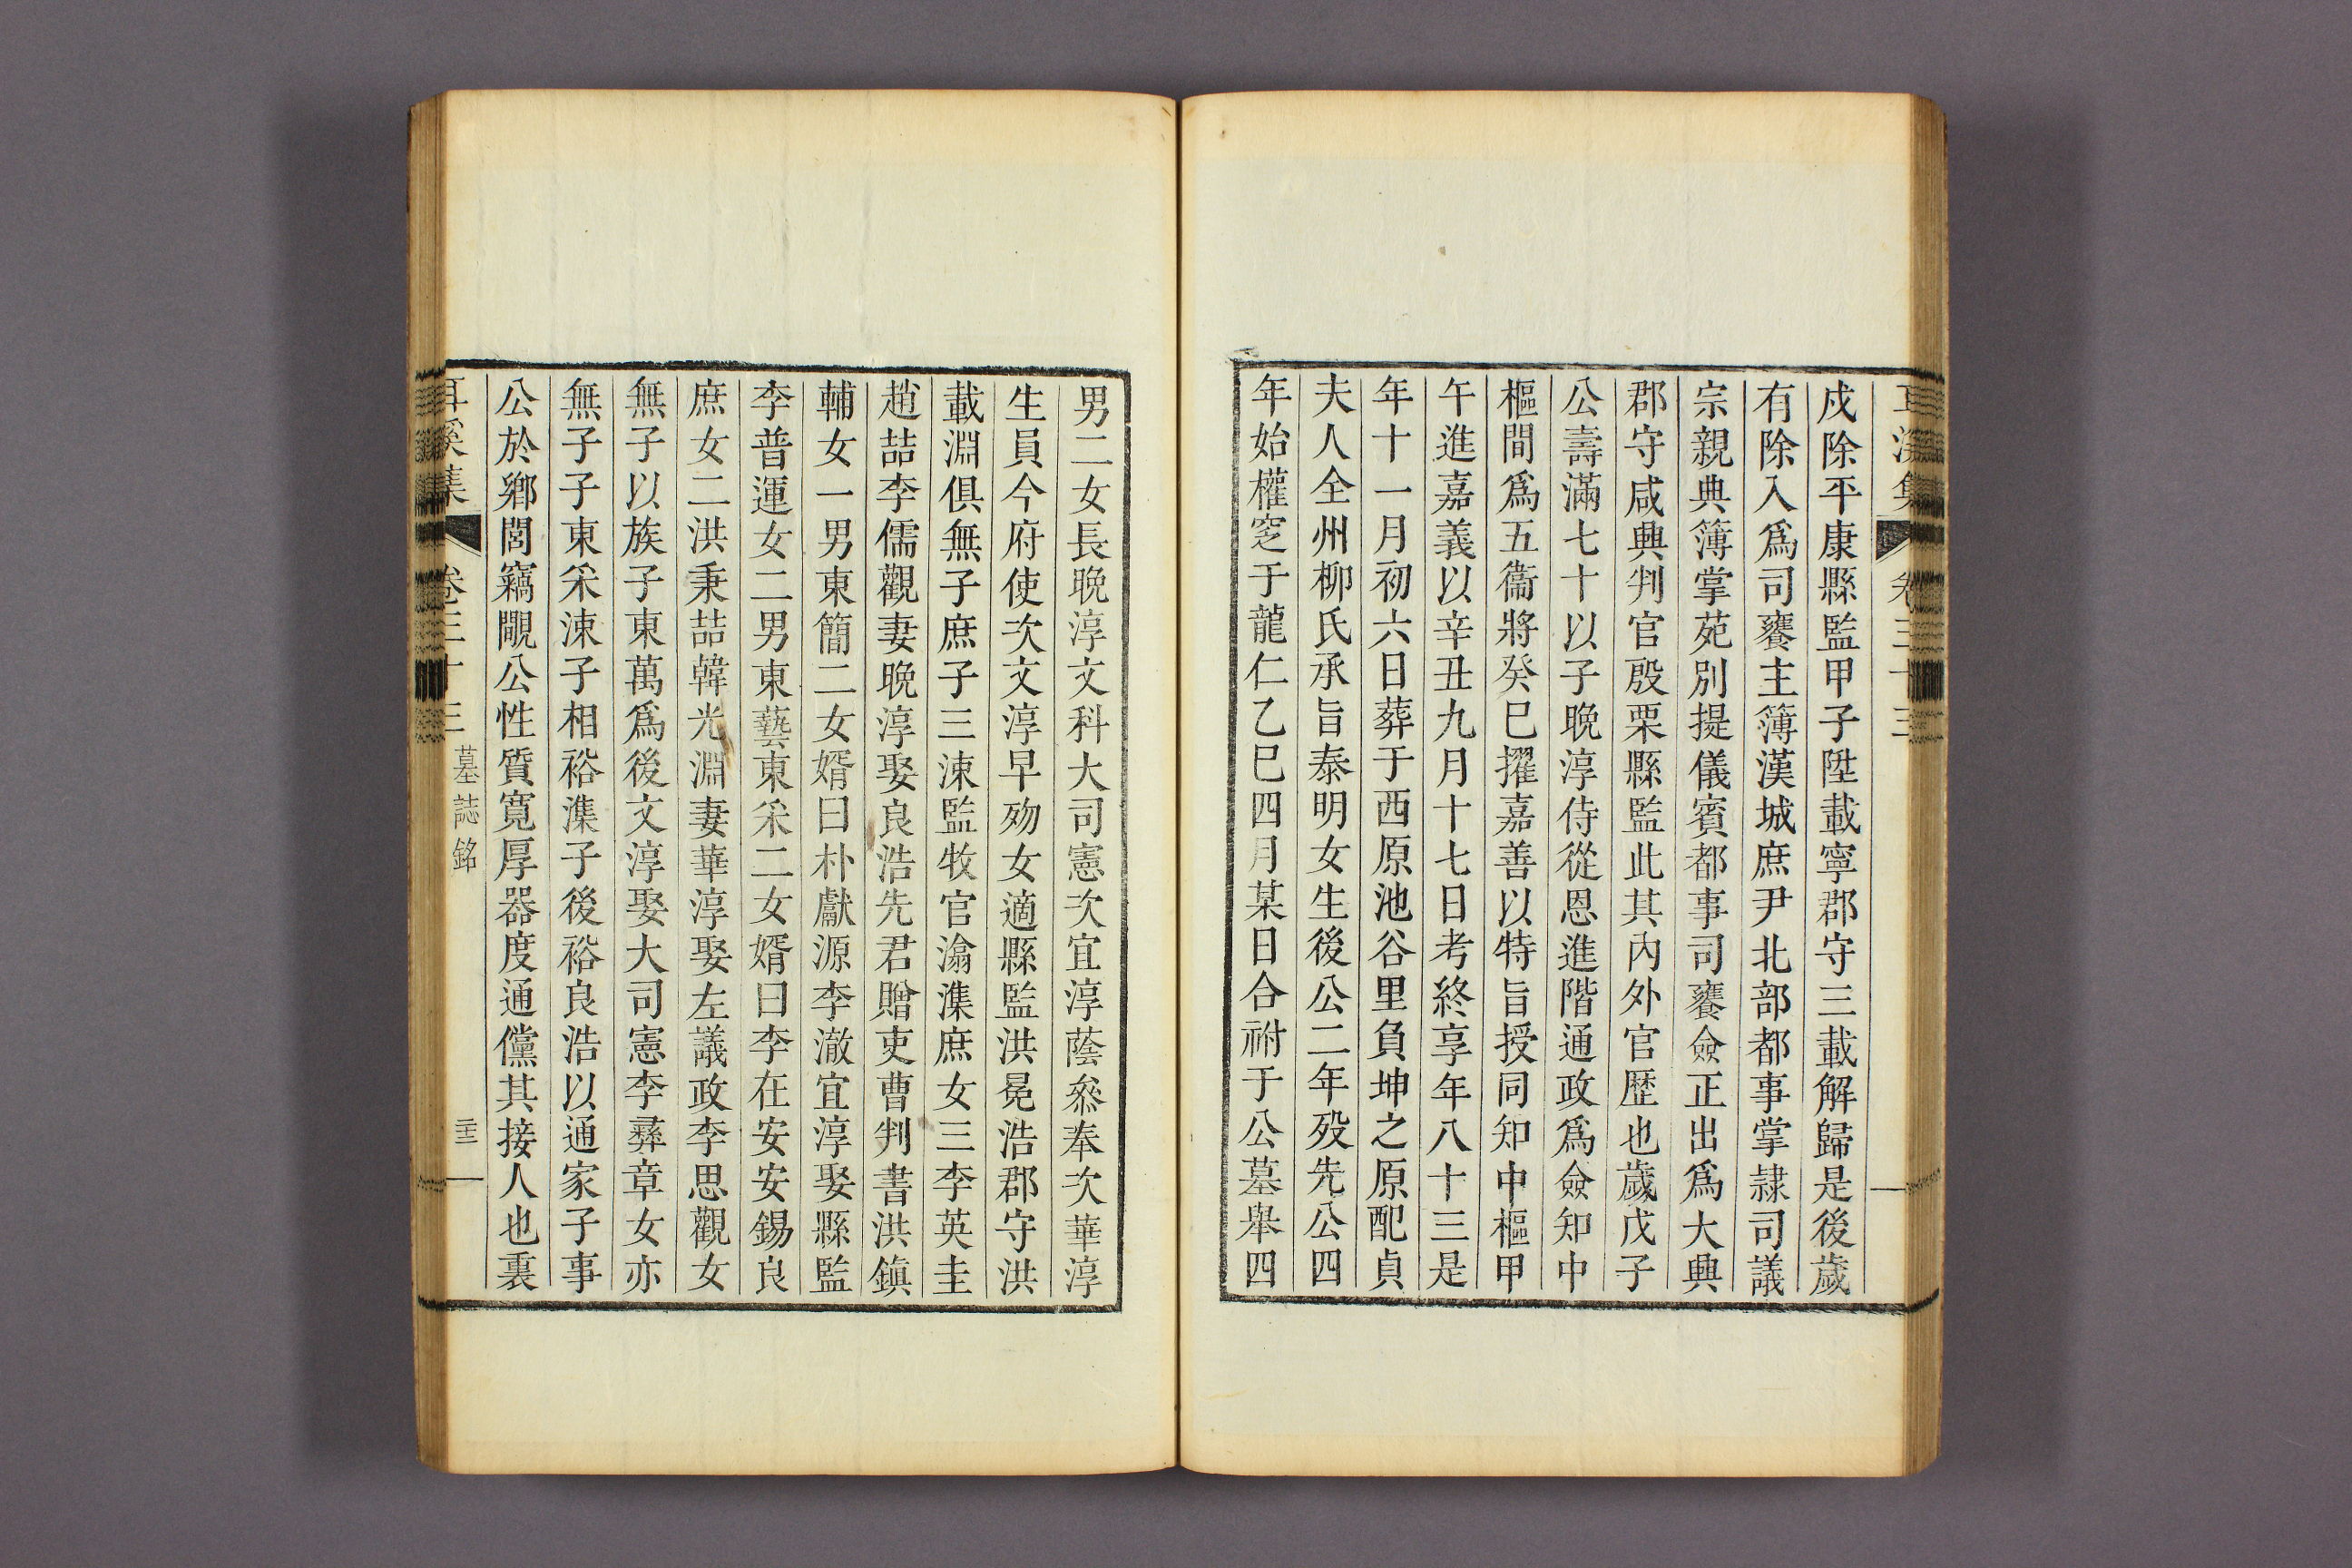 耳溪集 卷三十三
戍除平康縣監甲子陞載寧郡守三載解歸是後歲
有除入爲司饔主簿漢城庶尹北部都事掌隷司議
宗親典簿掌苑別提儀賓都事司饔僉正出爲大興
郡守咸興判官殷栗縣監此其內外官歷也歲戊子
公壽滿七十以子晩淳侍從恩進階通政爲僉知中
樞間爲五衞將癸巳擢嘉善以特旨授同知中樞甲
午進嘉義以辛丑九月十七日考終享年八十三是
年十一月初六日葬于西原池谷里負坤之原配貞
夫人全州柳氏承旨泰明女生後公二年歿先公四
年始權窆于龍仁乙巳四月某日合祔于公墓舉四
男二女長晩淳文科大司憲次宜淳蔭叅奉次華淳
生員今府使次文淳早歾女適縣監洪晃浩郡守洪
載淵俱無子庶子三涑監牧官瀹潗庶女三李英圭
趙喆李儒觀妻晩淳娶良浩先君贈吏曹判書洪鎭
輔女一男東簡二女婿曰朴獻源李澈宜淳娶縣監
李普運女二男東藝東采二女婿曰李在安安錫良
庶女二洪秉喆韓光淵妻華淳娶左議政李思觀女
無子以族子東萬爲後文淳娶大司憲李彝章女亦
無子子東采涑子相裕潗子後裕良浩以通家子事
公於鄕閭竊覸公性質寬厚器度通儻其接人也裏
耳溪集 卷三十三 墓誌銘